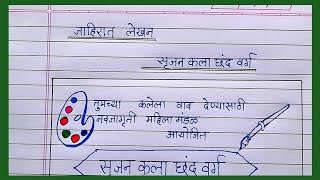 जाहिरात लेखन
सृजन कला छंद वर्ग
तुमच्या कलेला वाव देण्यासाठी
नवजागृती महिला मंडळ
आयोजित
सृजन कला छंद वर्ग